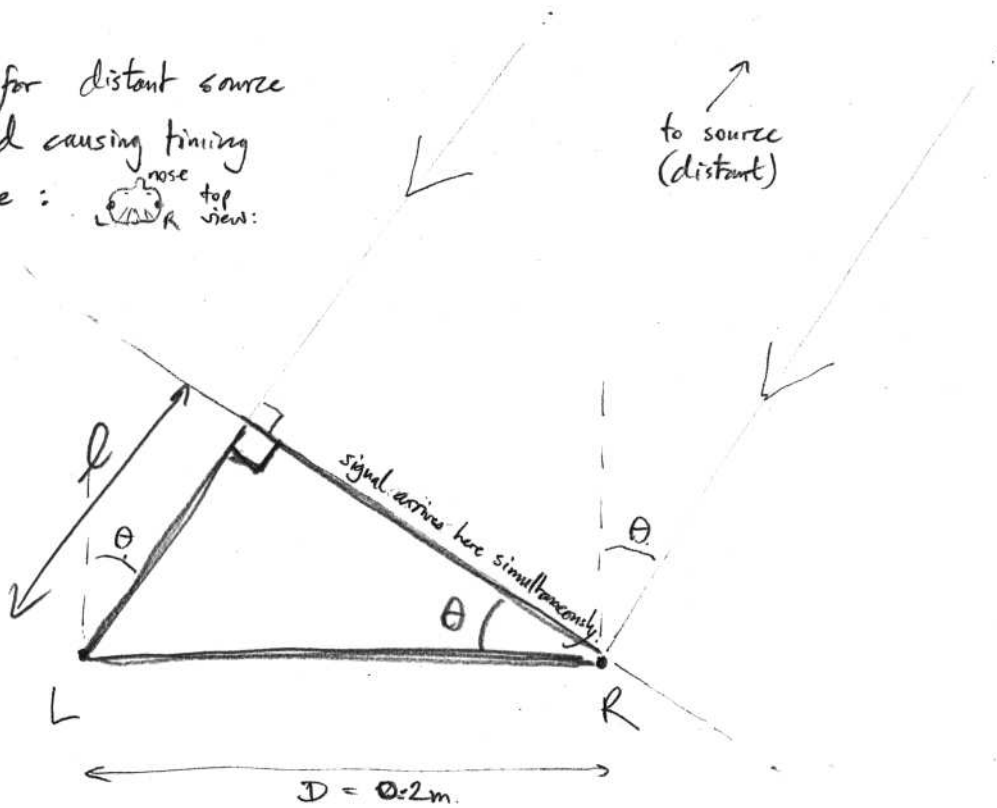 for distant source
d causing timing
e :
nose
L R
top
view:
to source
(distant)
l
θ
signal arrives here simultaneously.
θ
θ
L
R
D = 0.2m.